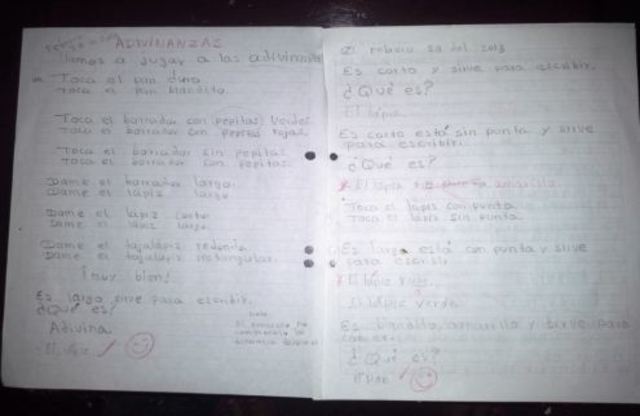 ADIVINANZAS
Vamos a jugar a las adivinanzas
Toca el pan duro
Toca el pan blandito.
Toca el borrador con pepitas verdes
Toca el borrador con pepitas rojas
Toca el borrador sin pepitas
Toca el borrador con pepitas.
Dame el borrador largo
Dame el lápiz largo
Dame el lápiz corto
Dame el lápiz largo
Dame el tajalápiz redondo
Dame el tajalápiz rectangular.
¡muy bien!
Es largo sirve para escribir.
¿Qué es?
Adivina
El lápiz
Es corto y sirve para escribir.
¿Qué es?
El lápiz
Es corto está sin punta y sirve
para escribir.
¿Qué es?
El lápiz amarillo
Toca el lápiz con punta
Toca el lápiz sin punta.
Es largo está con punta y sirve
para escribir
El lápiz
El lápiz verde
Es blandito, amarillo y sirve para
¿Qué es?
El pan